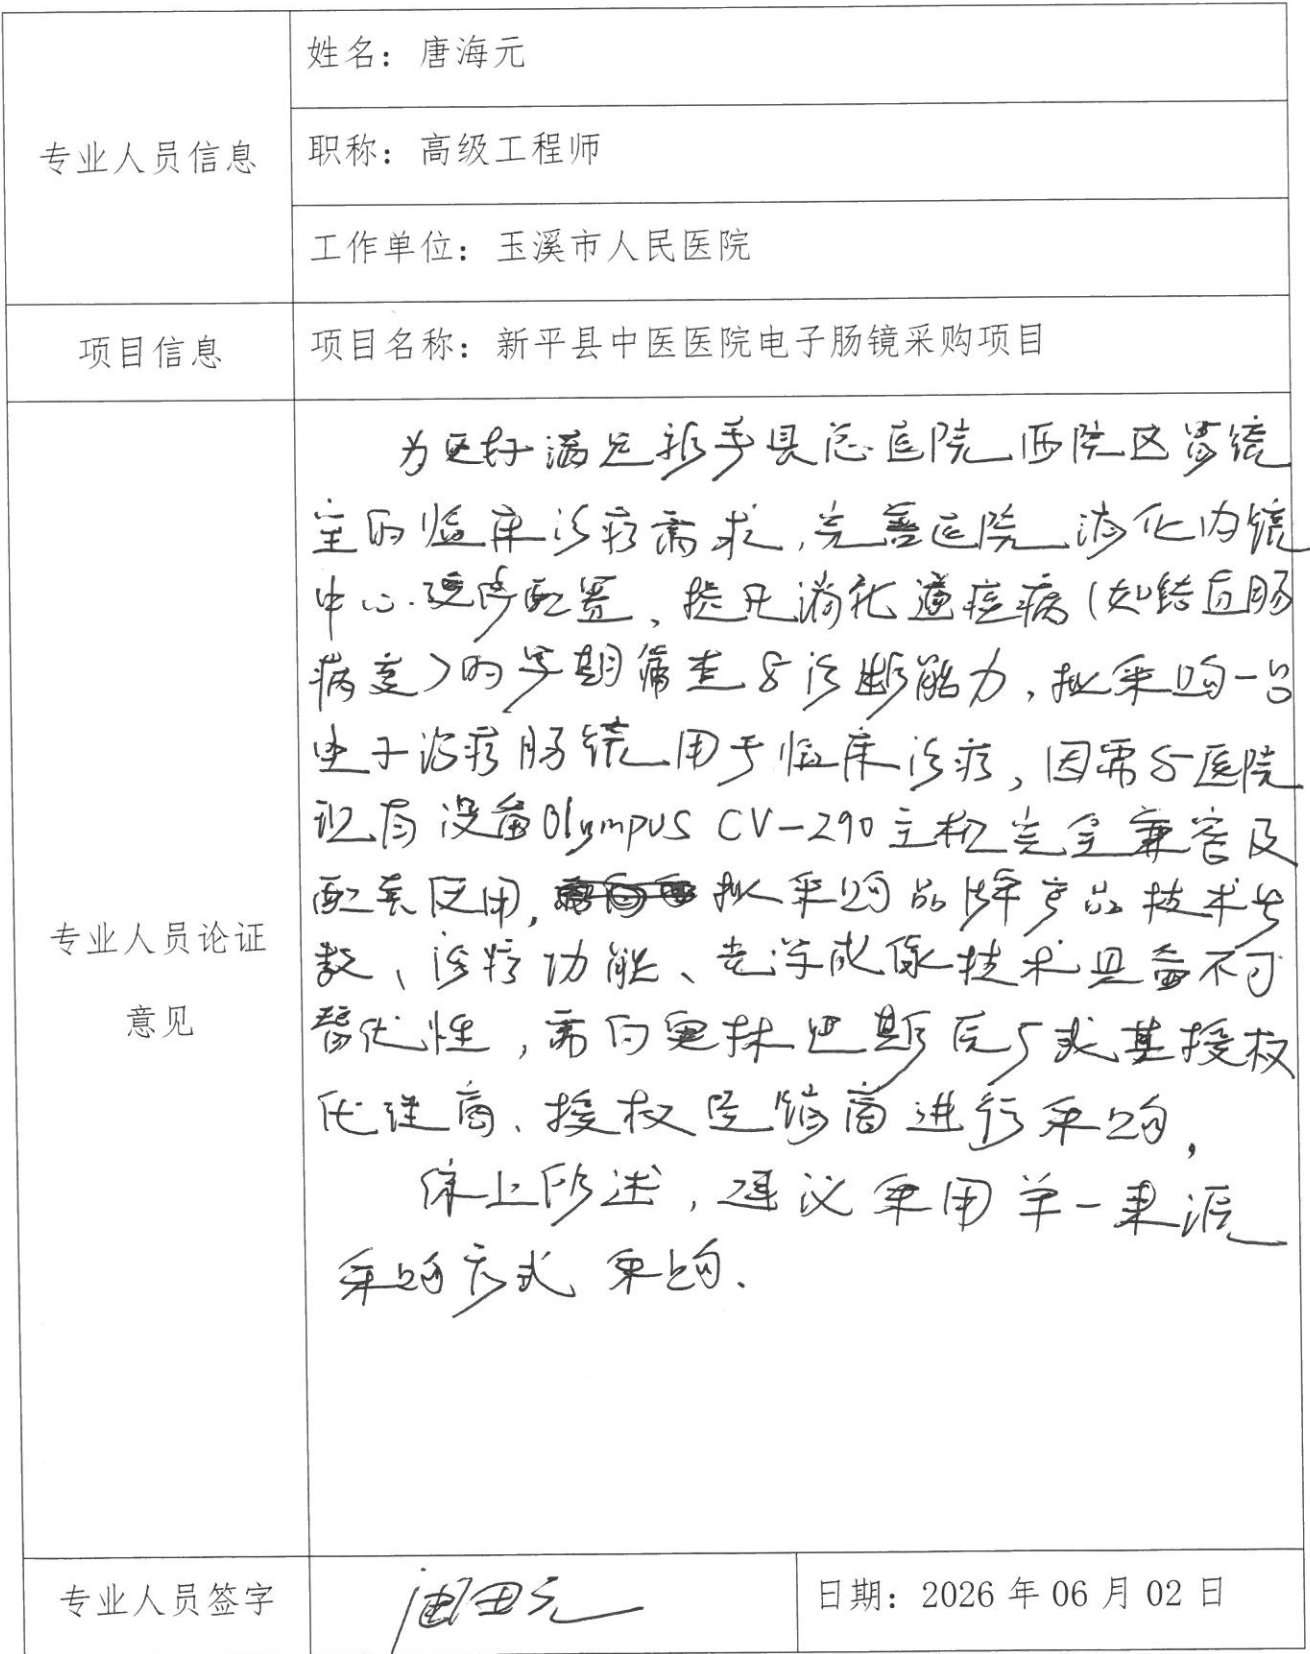 姓名：唐海元
专业人员信息
职称：高级工程师
工作单位：玉溪市人民医院
项目信息
项目名称：新平县中医医院电子肠镜采购项目
为更好满足新平县总医院西院区胃镜
室的临床诊疗需求，完善医院消化内镜
中心设备配置、提升消化道癌病（如结直肠
病变）的早期筛查与诊断能力，拟采购一台
电子治疗肠镜用于临床诊疗，因需与医院
现有设备Olympus CV-290主机完全兼容及
配套使用，拟采购品牌产品技术参
数、诊疗功能、光学成像技术具备不可
替代性，需向奥林巴斯原厂或其授权
代理商、授权经销商进行采购，
综上所述，建议采用单一来源
采购方式采购.
专业人员论证
意见
专业人员签字
日期：2026年06月02日